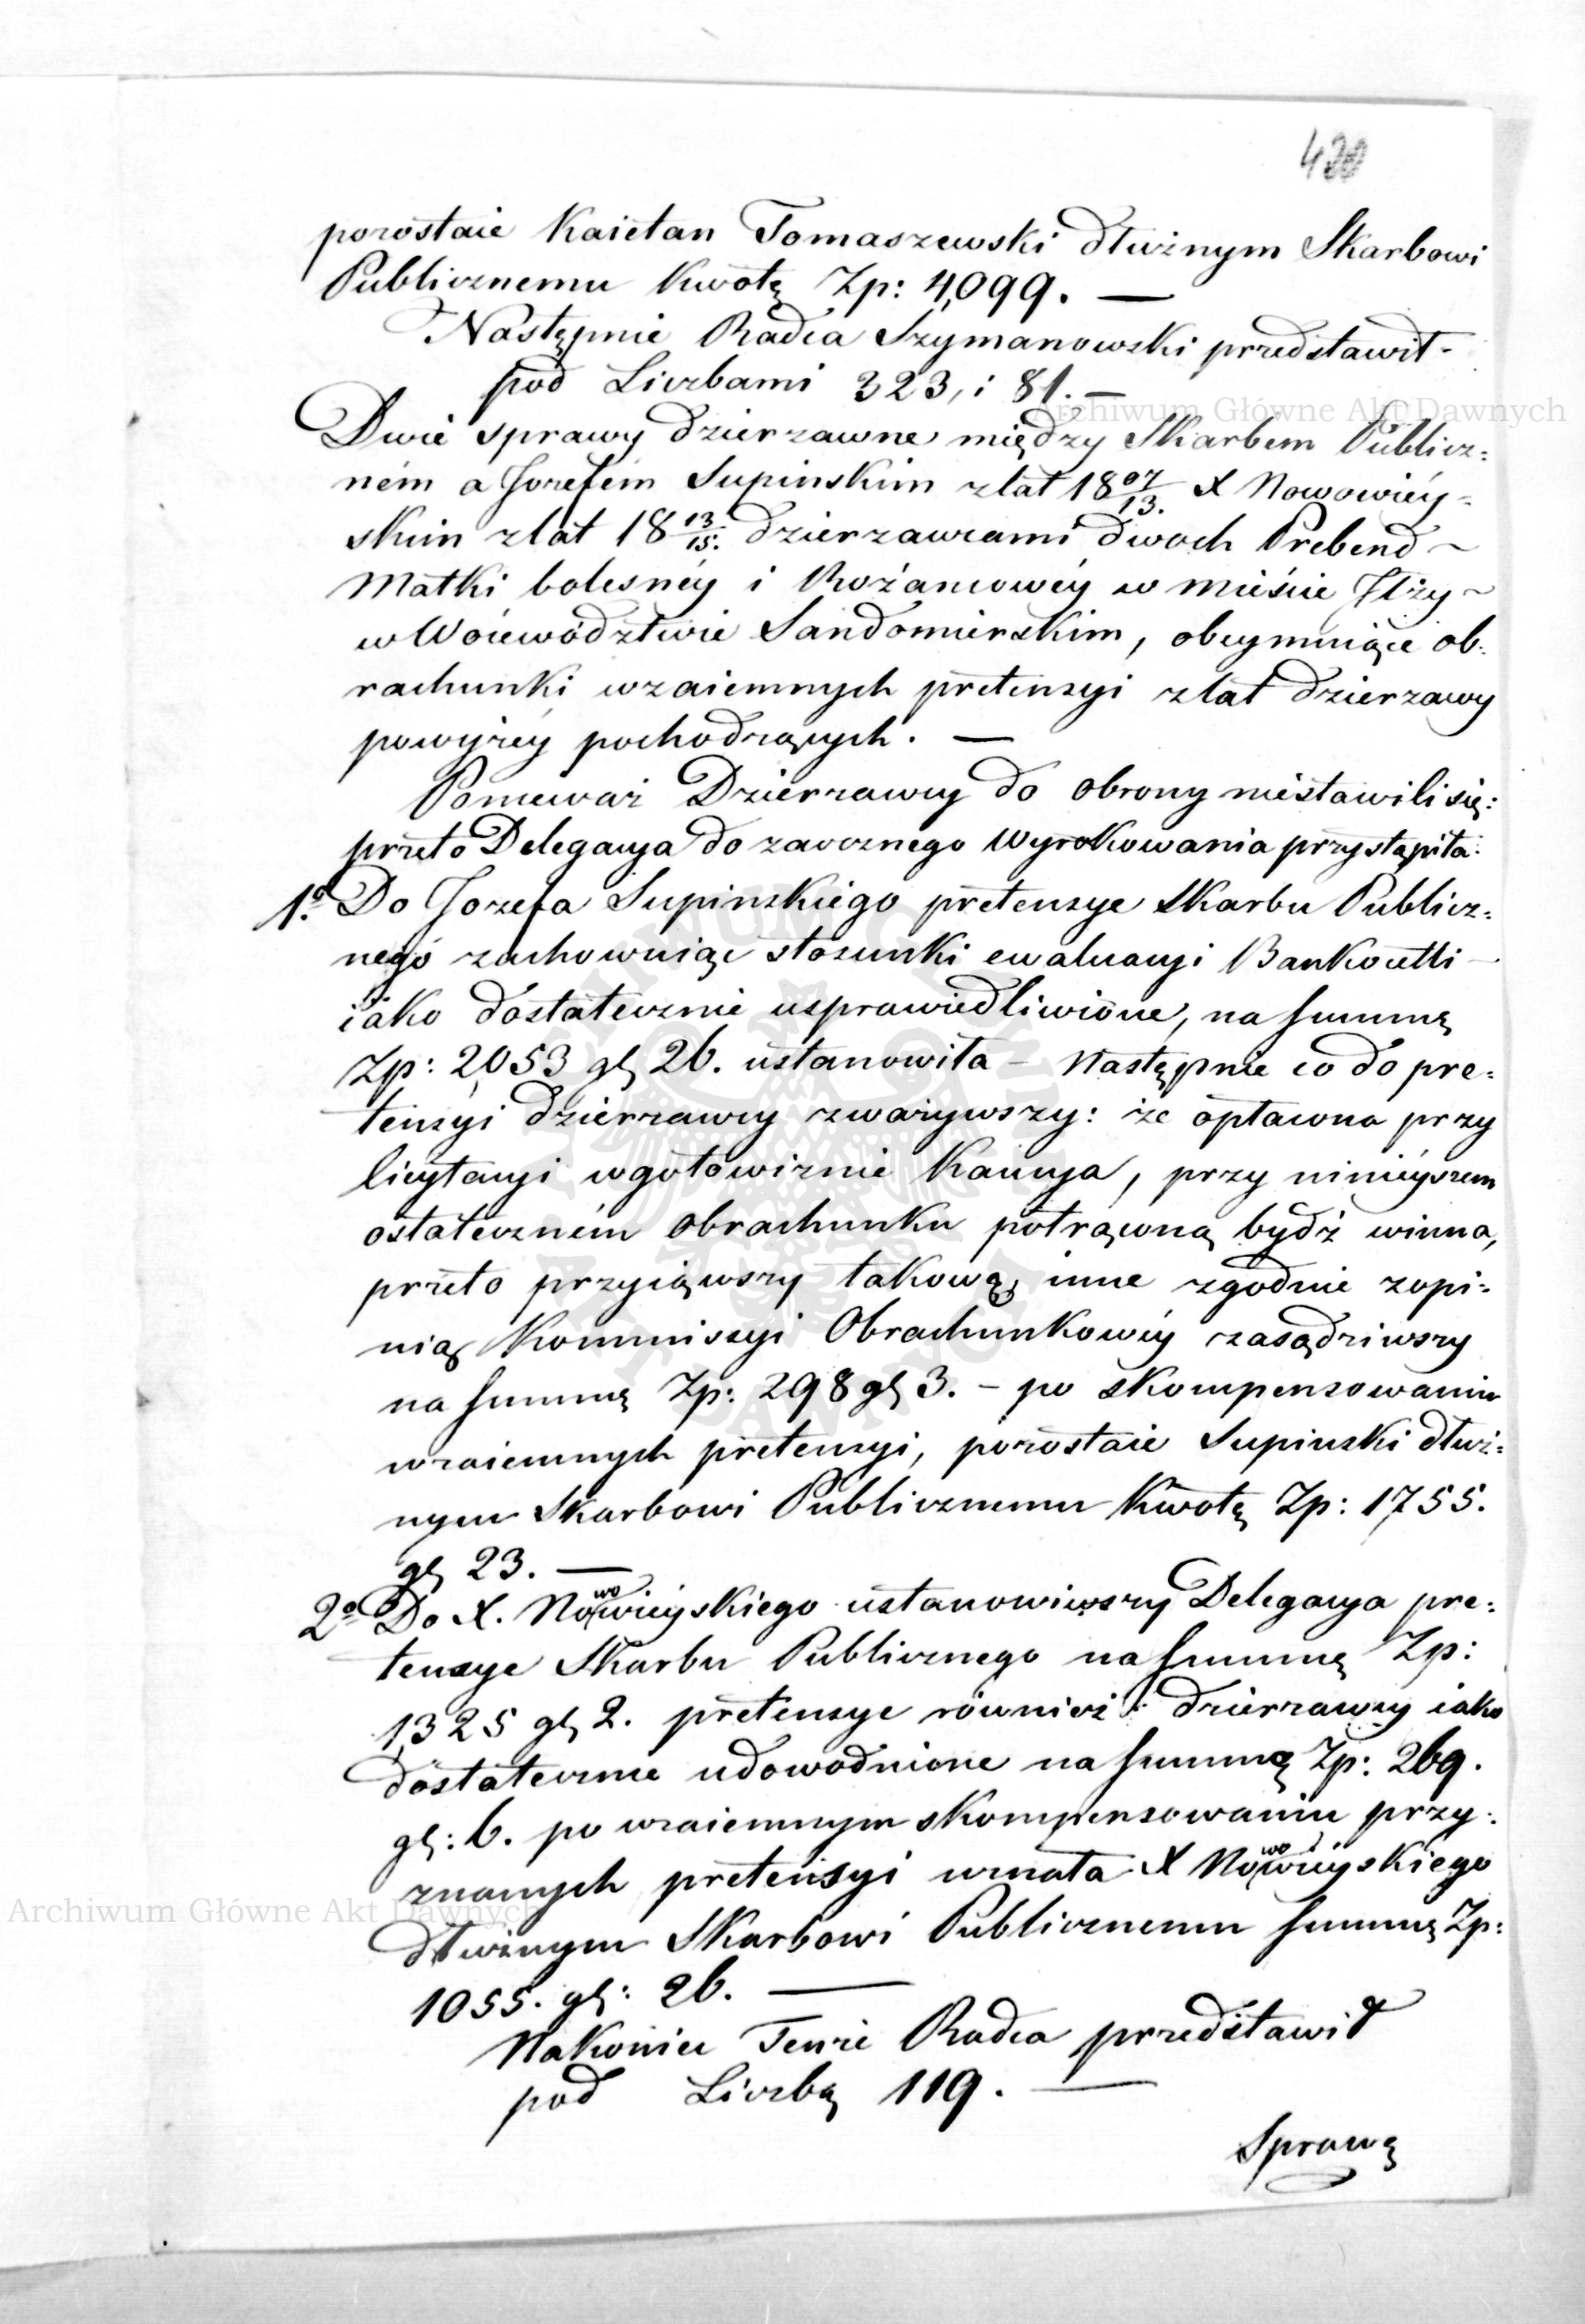 pozostaie Kaietan Tomaszewski dłużnym Skarbowi
Publicznemu Kwotę Zp: 4,099. —
Następnie Radca Szymanowski przedstawił
pod Liczbami 323, i 81. —
Archiwum Główne Akt Dawnych
Dwie sprawy dzierzawne między Skarbem Publicz=
ném a Jozefem Supinskim z lat 18 07/13. X Nowowiéy=
skim z lat 18 13/15. dzierzawcami dwoch Prebend ~
Matki bolesnéy i Rożancowéy w mieście Iłży ~
w Woiewództwie Sandomierskim, obeymuiące ob=
rachunki wzaiemnych pretensyi z lat dzierzawy
powyżéy pochodzących. —
Ponieważ Dzierzawcy do obrony niestawili się:
przeto Delegacya do zaocznego Wyrokowania przystąpiła:
1º. Do Jozefa Supinskiego pretensye Skarbu Publicz=
nego zachowuiąc stosunki ewaluacyi Bankocetli —
iako dostatecznie usprawiedliwione, na summę
Zp: 2,053 gl 26. ustanowiła — Następnie co do pre=
tensyi dzierzawcy zważywszy: że opłacona przy
licytacyi w gotowiznie Kaucya, przy ninieyszem
ostateczném obrachunku potrąconą bydź winna,
przeto przyiąwszy takową, inne zgodnie z opi=
nią Kommissyi Obrachunkowéy zasądziwszy
na summę Zp: 298 gl 3. — po skompensowaniu
wzaiemnych pretensyi, pozostaie Supinski dłuż=
nym Skarbowi Publicznemu Kwotę Zp: 1755.
gl 23. —
2º Do X. Nowowieyskiego ustanowiwszy Delegacya pre=
tensye Skarbu Publicznego na summę Zp:
1,325 gl 2. pretensye równiez dzierzawcy iako
dostatecznie udowodnione na summę Zp: 269.
gl: 6. po wzaiemnym skompensowaniu przy=
znanych pretensyi uznała X Nowowieyskiego
Archiwum Główne Akt Dawnych
dłużnym Skarbowi Publicznemu summę Zp:
1055. gl: 26. —
Nakoniec Tenże Radca przedstawił
pod Liczbą 119. —
Sprawę